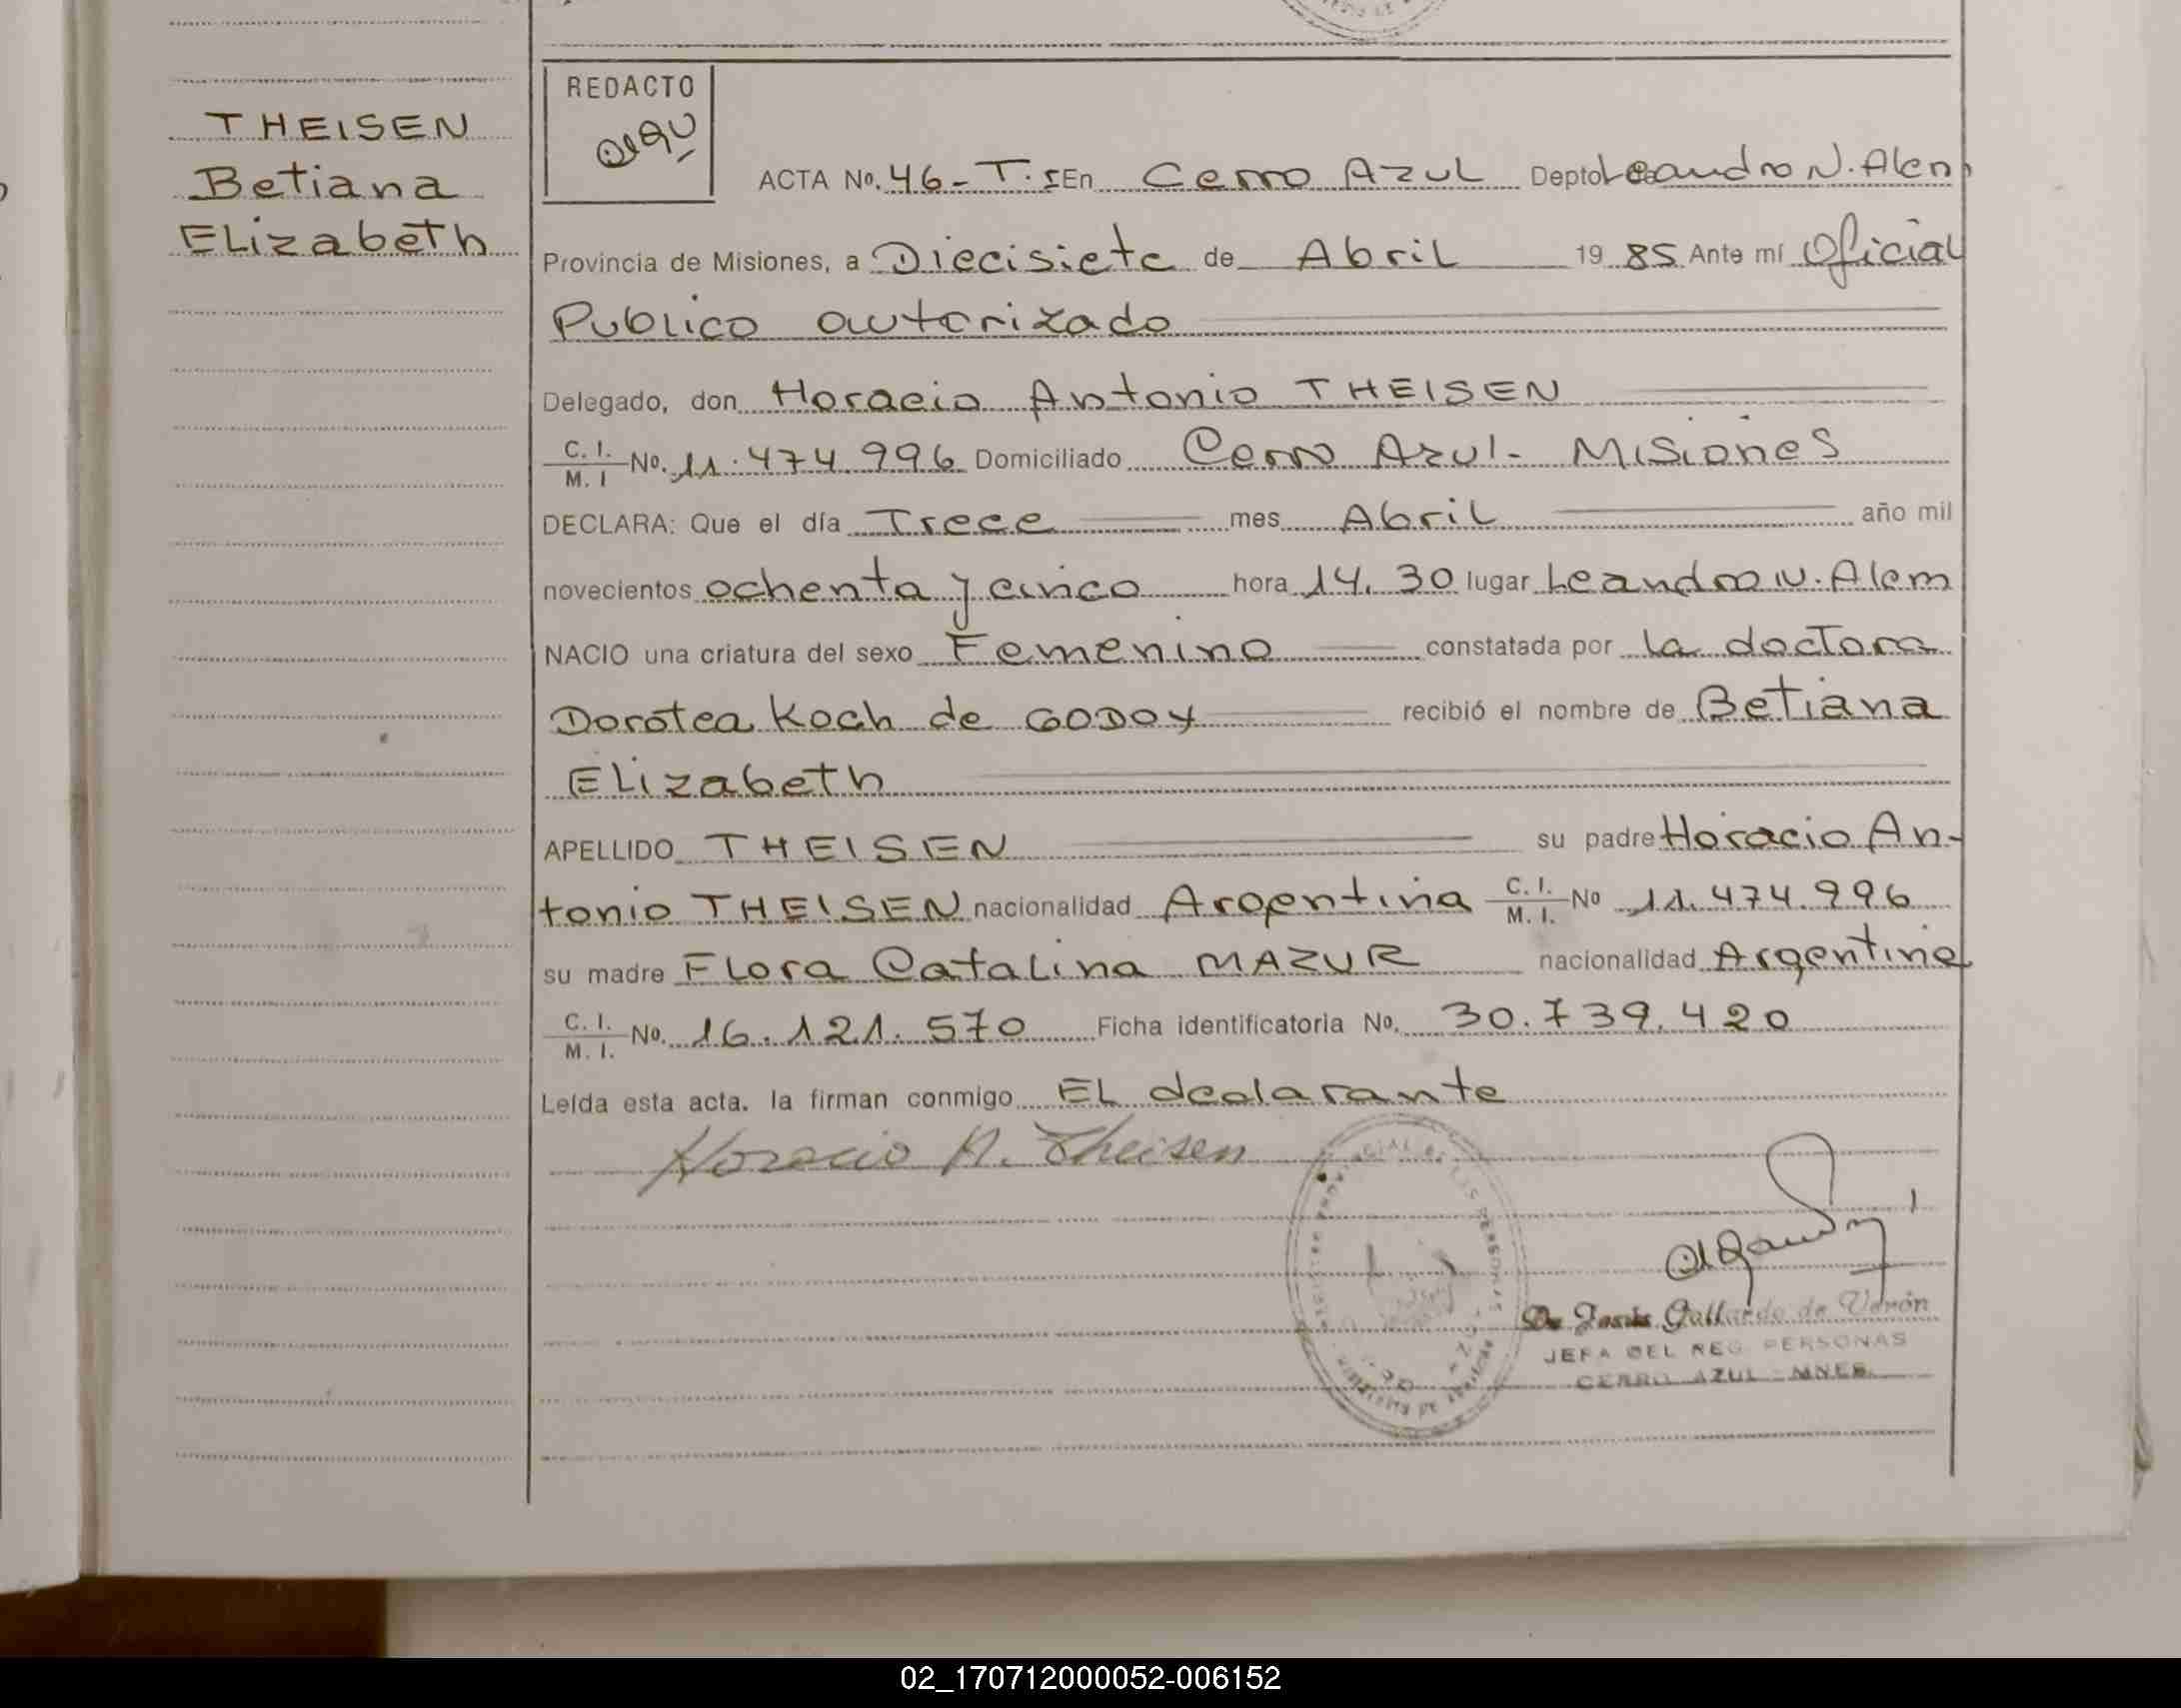 THEISEN
Betiana
ELizabeth
REDACTO
ACTA No. 46 - T. I En Cerro AZUL Depto Leandro N. Alem
Provincia de Misiones, a Diecisiete de Abril 19 85 Ante mí Oficial
Publico autorizado
Delegado, don Horacio Antonio THEISEN
C. I. / M. I No. 11.474.996 Domiciliado Cerro Azul - MisioneS
DECLARA: Que el día Trece mes Abril año mil
novecientos ochenta y cinco hora 14.30 lugar Leandro N. Alem
NACIO una criatura del sexo Femenino constatada por la doctora
Dorotea Koch de GODOY recibió el nombre de Betiana
ELizabeth
APELLIDO THEISEN su padre Horacio An-
tonio THEISEN nacionalidad Argentina C. I. / M. I. No 11.474.996
su madre FLora CataLina MAZUR nacionalidad Argentina
C. I. / M. I. No. 16.121.570 Ficha identificatoria No. 30.739.420
Leída esta acta, la firman conmigo EL declarante
Horacio A. Theisen
Gallardo de Verón
JEFA DEL REG PERSONAS
CERRO AZUL - MNES.
02_170712000052-006152